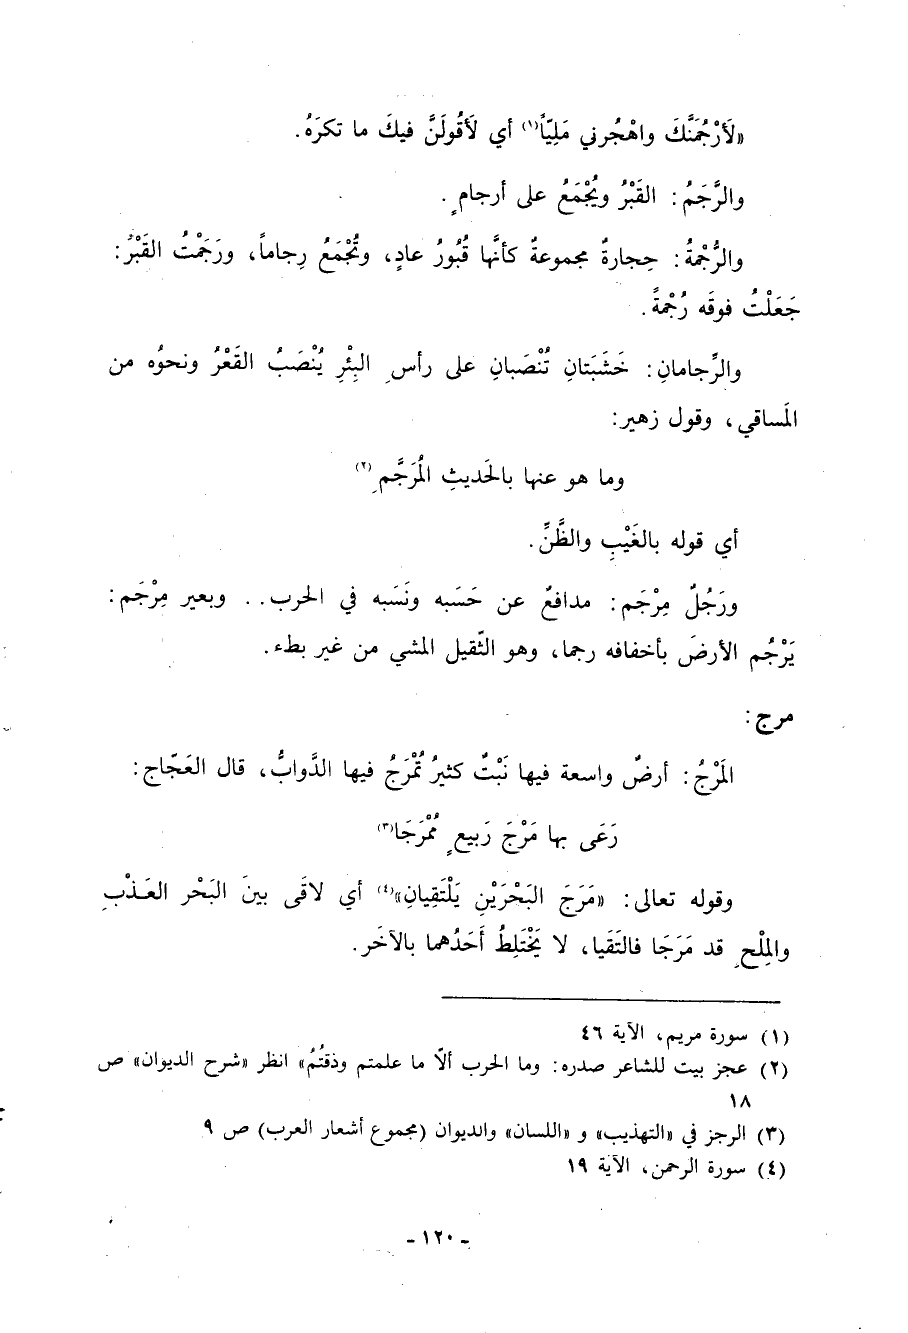 «لَأَرْجُمَنَّكَ واهْجُرني مَلِيّاً(١) أي لَأَقُولَنَّ فيكَ ما تكرَهُ.
والرَّجَمُ: القَبْرُ ويُجْمَعُ على أرجامٍ.
والرُّجْمةُ: حِجارةٌ مجموعةٌ كأنَّها قُبُورُ عادٍ، وتُجْمَعُ رِجاماً، ورَجَمْتُ القَبْرَ:
جَعَلْتُ فوقَه رُجْمةً.
والرِّجامانِ: خَشَبَتانِ تُنْصَبانِ على رأسِ البِئْرِ يُنْصَبُ القَعْرُ ونحوُه من
المَساقي، وقول زهير:
وما هو عنها بالحَديثِ المُرَجَّمِ(٢)
أي قوله بالغَيْبِ والظَّنِّ.
ورَجُلٌ مِرْجَم: مدافعٌ عن حَسَبه ونَسَبه في الحرب.. وبعير مِرْجَم:
يَرْجُم الأرضَ بأخفافه رجما، وهو الثّقيل المشي من غير بطء.
مرج:
المَرْجُ: أرضٌ واسعة فيها نَبْتٌ كثيرُ تُمْرَجُ فيها الدَّوابُّ، قال العَجّاج:
رَعَى بها مَرْجَ رَبيعٍ مُمْرَجَا(٣)
وقوله تعالى: «مَرَجَ البَحْرَيْنِ يَلْتَقِيانِ»(٤) أي لاقَى بينَ البَحْر العَذْبِ
والمِلْحِ قد مَرَجَا فالتَقَيا، لا يَخْتَلِطُ أَحَدُهما بالآخَر.
(١) سورة مريم، الآية ٤٦
(٢) عجز بيت للشاعر صدره: وما الحرب ألّا ما علمتم وذقتُمُ» انظر «شرح الديوان» ص
١٨
(٣) الرجز في «التهذيب» و «اللسان» والديوان (مجموع أشعار العرب) ص ٩
(٤) سورة الرحمن، الآية ١٩
- ١٢٠ -